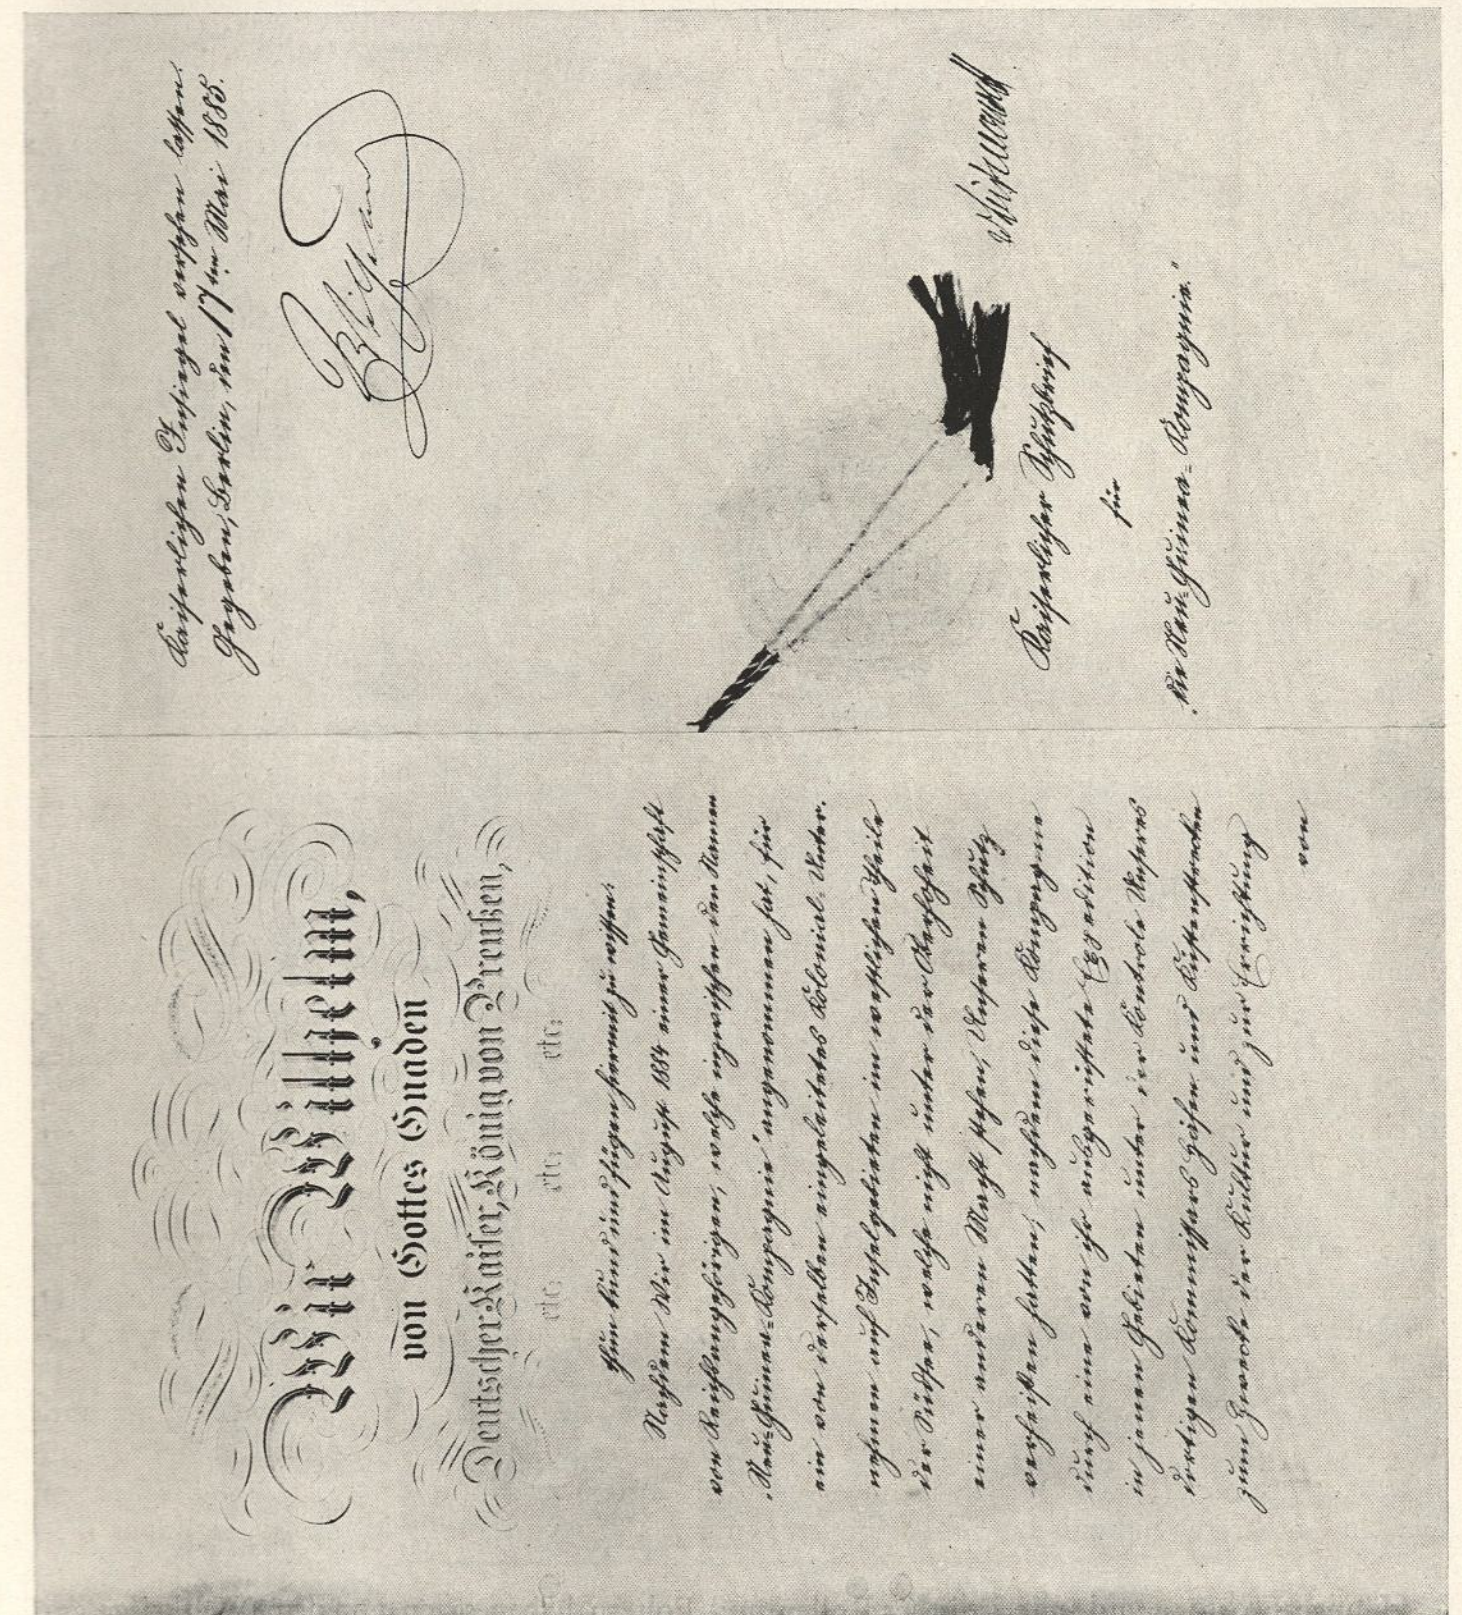 Wir Wilhelm,
von Gottes Gnaden
Deutscher Kaiser, König von Preußen,
etc. etc. etc.
thun kund und fügen hiermit zu wissen:
Nachdem Wir im August 1884 einer Gemeinschaft
von Reichsangehörigen, welche inzwischen den Namen
„Neu-Guinea-Kompagnie" angenommen hat, für
ein von derselben eingeleitetes Kolonial-Unter-
nehmen auf Inselgebieten im westlichen Theile
der Südsee, welche nicht unter der Oberhoheit
einer anderen Macht stehen, Unseren Schutz
verheißen hatten; nachdem diese Kompagnie
durch eine von ihr ausgerüstete Expedition
in jenen Gebieten unter der Kontrole Unseres
dortigen Kommissars Häfen und Küstenstrecken
zum Zwecke der Kultur und zur Errichtung
von
Kaiserlichen Insiegel versehen lassen.
Gegeben, Berlin, den 17ten Mai 1885.
Wilhelm
Kaiserlicher Schutzbrief
für
die Neu-Guinea-Kompagnie."